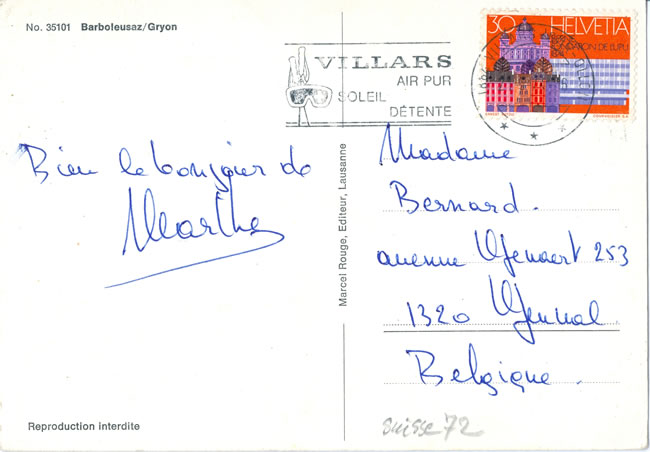 No. 35101 Barboleusaz/Gryon
30 HELVETIA
VILLARS
AIR PUR
SOLEIL
DÉTENTE
Bien le bonjour de
Marthe
Marcel Rouge, Editeur, Lausanne
Madame
Bernard.
avenue 253
1320
Belgique.
Reproduction interdite
suisse 72